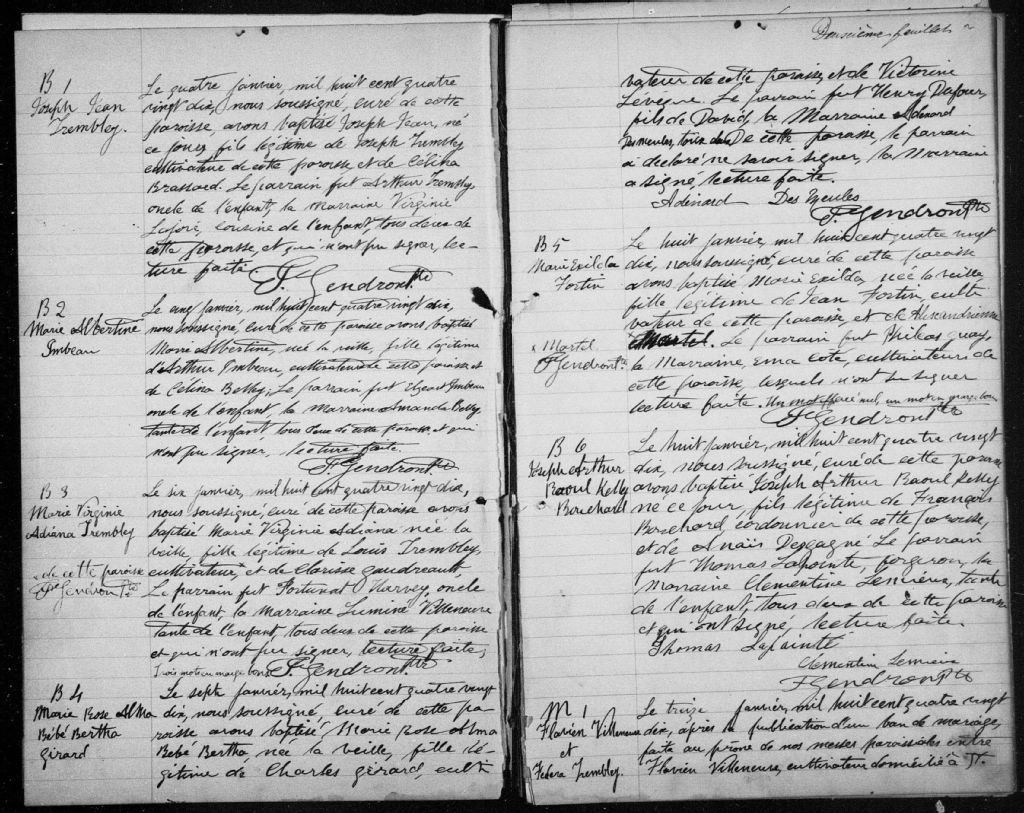 B 1
Joseph Jean
Trembley.
Le quatre janvier, mil huit cent quatre
vingt dix, nous soussigné, curé de cette
paroisse, avons baptisé Joseph Jean, né
ce jour, fils légitime de Joseph Trembley
cultivateur de cette paroisse et de Célina
Brassard. Le parrain fut Arthur Trembley,
oncle de l'enfant, la Marraine Virginie
cousine de l'enfant, tous deux de
cette paroisse, et qui n'ont pu signer, lec-
ture faite.
F. Gendron Ptre
B 2
Marie Albertine
Imbeau
Le cinq janvier, mil huit cent quatre vingt dix,
nous soussigné, curé de cette paroisse avons baptisé
Marie Albertine, née la veille, fille légitime
d'Arthur Imbeau, cultivateur de cette paroisse et
de Célina Belley; Le parrain fut Imbeau
oncle de l'enfant, la Marraine Amanda Belley
tante de l'enfant, tous deux de cette paroisse et qui
n'ont pu signer, lecture faite.
F. Gendron Ptre
B 3
Marie Virginie
Adiana Trembley
x de cette paroisse
F. Gendron Ptre
Le six janvier, mil huit cent quatre vingt dix,
nous soussigné, curé de cette paroisse avons
baptisé Marie Virginie Adiana née la
veille, fille légitime de Louis Trembley,
cultivateur x, et de Clarisse Gaudreault,
Le parrain fut Fortunat Harvey, oncle
de l'enfant, la Marraine Villeneuve
tante de l'enfant, tous deux de cette paroisse
et qui n'ont pu signer, lecture faite,
Trois mots en marge bons F. Gendron Ptre.
B 4
Marie Rose Alma
Bébé Bertha
Girard
Le sept janvier, mil huit cent quatre vingt
dix, nous soussigné, curé de cette pa-
roisse avons baptisé Marie Rose Alma
Bébé Bertha, née la veille, fille lé-
gitime de Charles Girard, culti
Deuxième feuillet
vateur de cette paroisse, et de Victorine
Lévêque. Le parrain fut Henry Dufour,
fils de David, la Marraine Adénard
Des Meules, tous deux De cette paroisse, le parrain
a déclaré ne savoir signer, la Marraine
a signé, lecture faite.
Adénard Des Meules
F. Gendron Ptre
B 5
Marie Exilda
Fortin
x Martel
F. Gendron Ptre
Le huit janvier, mil huit cent quatre vingt
dix, nous soussigné, curé de cette paroisse
avons baptisé Marie Exilda, née la veille
fille légitime de Jean Fortin, culti
vateur de cette paroisse, et de Alexandrienne
Le parrain fut Philéas Guay,
la Marraine, Ema Coté, cultivateurs de
cette paroisse, lesquels n'ont su signer
lecture faite. Un mot effacé nul, un mot en marge bon
F. Gendron Ptre
B 6
Joseph Arthur
Raoul Kelly
Bouchard
Le huit janvier, mil huit cent quatre vingt
dix, nous soussigné, curé de cette paroisse
avons baptisé Joseph Arthur Raoul Kelly
né ce jour, fils légitime de François
Bouchard, cordonnier de cette paroisse,
et de Anaïs Desgagné. Le parrain
fut Thomas Lapointe, forgeron, la
Marraine Clementine Lemieux, tante
de l'enfant, tous deux de cette paroisse
et qui ont signé, lecture faite.
Thomas Lapointe
Clementine Lemieux
F. Gendron Ptre
M 1
Flavien Villeneuve
et
Trembley.
Le treize janvier, mil huit cent quatre vingt
dix, après la publication d'un ban de mariage,
faite au prône de nos messes paroissiales entre
Flavien Villeneuve, cultivateur domicilié à St.